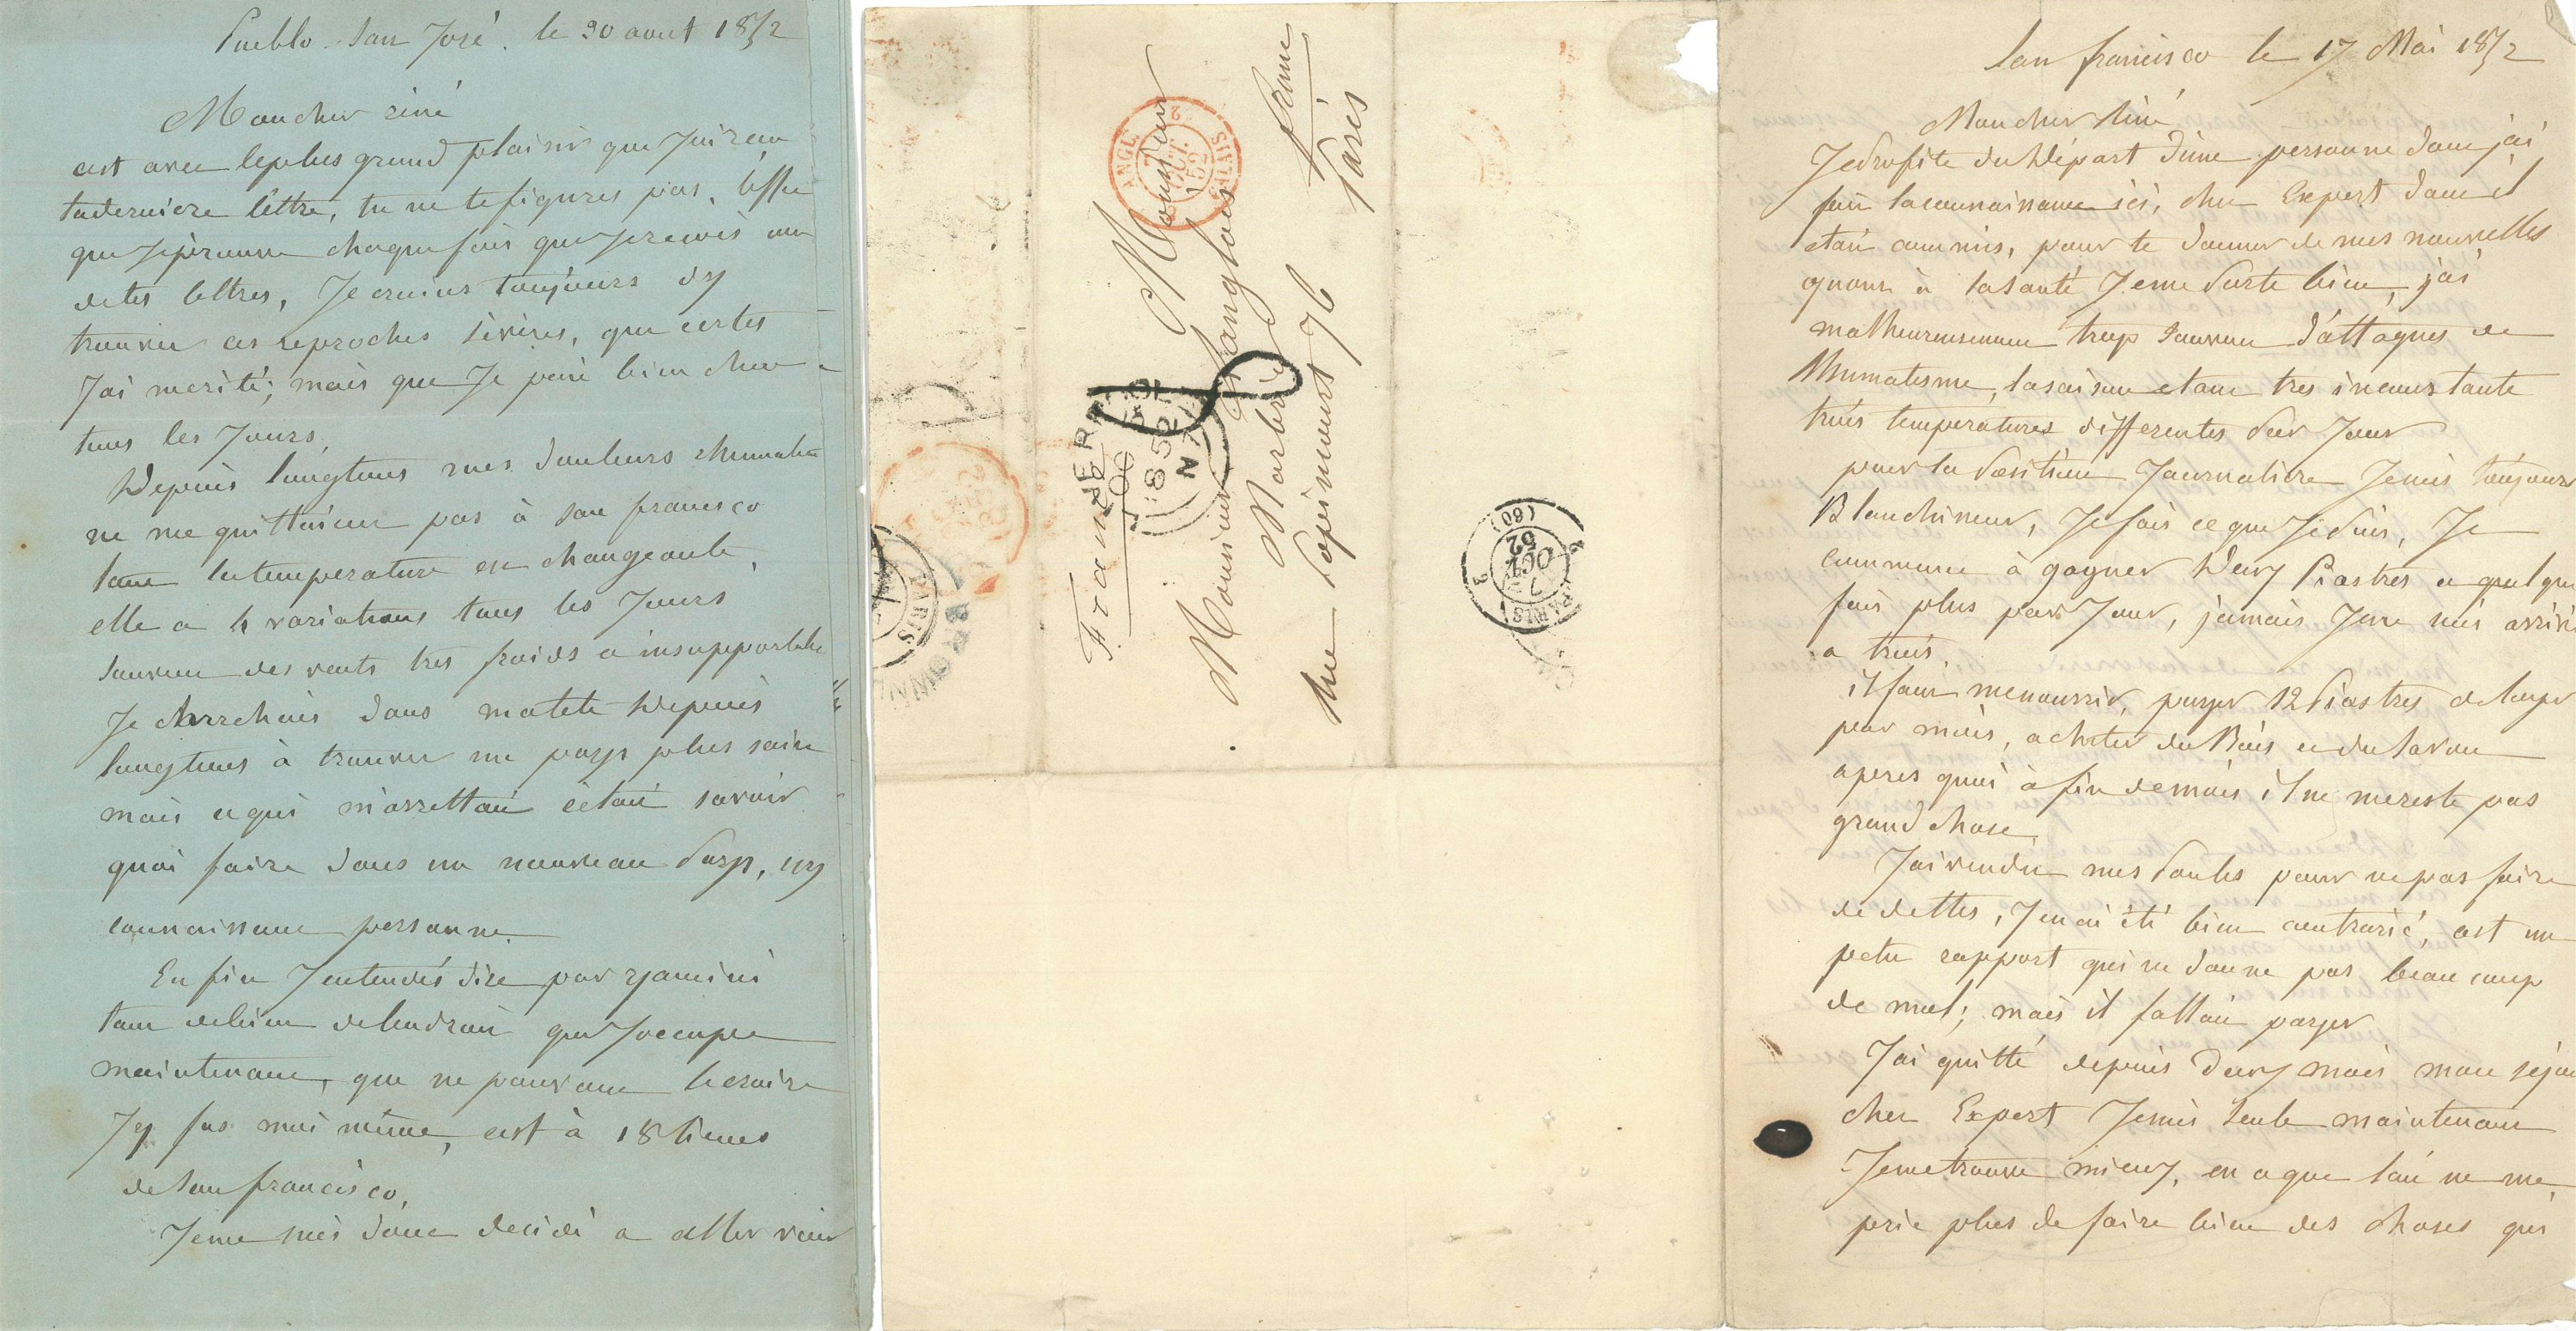 Pueblo San José. le 30 aout 1852
Mon cher réné
cest avec le plus grand plaisir que J'ai reçu
ta derniere lettre, tu ne te figures pas, l'effet
que J'éprouve chaque fois que Je reçois une
de tes lettres, Je crains toujours d'y
trouver ces reproches sévères, que certes
J'ai merité; mais que Je paie bien cher
tous les Jours.
Depuis longtems mes douleurs rhumati
ne me quittaient pas à san francisco
tant la temperature est changeante,
elle a 4 variations tous les Jours
souvent des vents tres froids et insupportable
Je cherchais dans ma tete depuis
longtems à trouver un pays plus sain
mais ce qui m'arrettait c'étai savoir
quoi faire dans un nouveau Pays, ny
connaissant personne.
Enfin J'entendis dire par
tant de bien de lendroit que J'occupe
maintenant, que ne pouvant le croire
J'y fus moi même, cest à 18 lieues
de San francisco,
Je me suis donc decidé a aller voir
Franc
Monsieur
Monsieur Langlois
Marbrier
rue Popincourt 76
Paris
France
ANGL. 2 OCT. 52 CALAIS
1852
PARIS
PARIS 7 OCT 52 (60)
San francisco le 17 Mai 1852
Mon cher Réné
Je profite du Départ d'une personne dont j'ai
fait la connaissance ici, chez Expert dont il
étai commis, pour te donner de mes nouvelles
quant à la santé Je me porte bien, j'ai
malheureusement trop souvent d'attaques de
Rhumatisme, la saison etant tres inconstante
trois temperatures differentes par Jour
pour la Position Journaliere Je suis toujours
Blanchisseur, Je fais ce que Je puis, Je
commence à gagner Deux Piastres et quelque
fois plus par Jour, jamais Je ne suis arrivé
a trois.
il faut me nourrir, payer 12 Piastres de loyer
par mois, acheter du Bois et du savon
apres quoi à fin de mois il ne me reste pas
grand chose.
J'ai vendu mes Poules pour ne pas faire
de dettes, J'en ai été bien contrarié, cest un
petit rapport qui ne donne pas beaucoup
de mal; mais il fallait payer
J'ai quitté depuis deux mois mon séjour
chez Expert Je suis seule maintenant
Je me trouve mieux, en ce que l'on ne me
prie plus de faire bien des choses qui